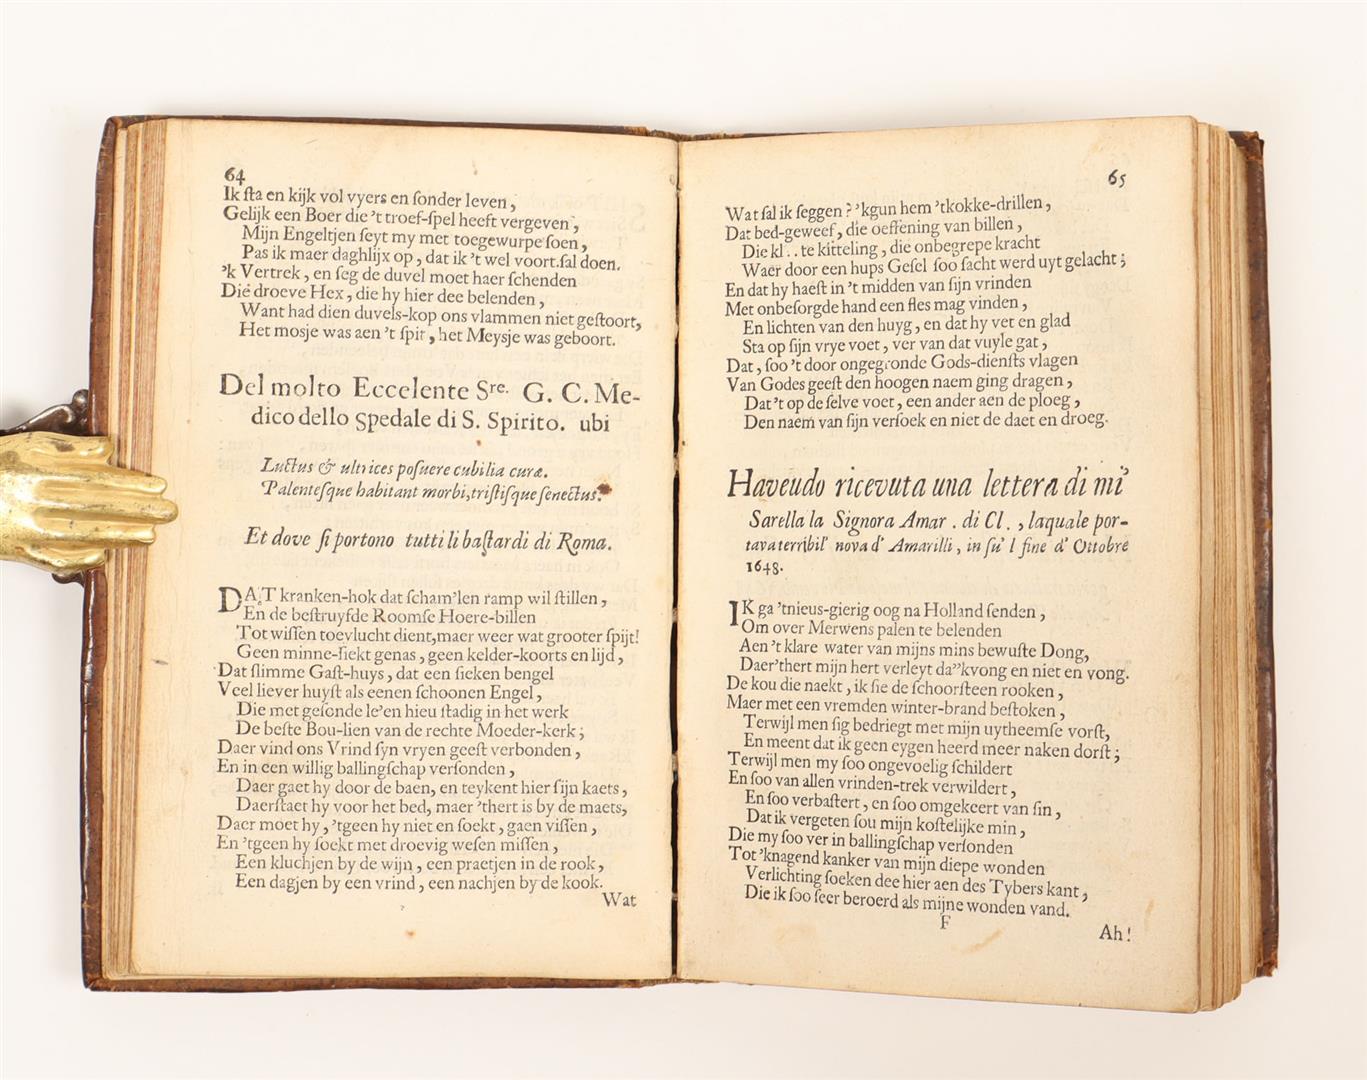 64
Ik ſta en kijk vol vyers en ſonder leven,
Gelijk een Boer die 't troef-ſpel heeft vergeven,
Mijn Engeltjen ſeyt my met toegewurpe ſoen,
Pas ik maer daghlijx op, dat ik 't wel voort ſal doen.
'k Vertrek, en ſeg de duvel moet haer ſchenden
Die droeve Hex, die hy hier dee belenden,
Want had dien duvels-kop ons vlammen niet geſtoort,
Het mosje was aen 't ſpit, het Meysje was geboort.
Del molto Eccelente Sre. G. C. Me-
dico dello ſpedale di S. Spirito. ubi
Luctus & ultrices poſuere cubilia curæ.
Palenteſque habitant morbi, triſtiſque ſenectus.
Et dove ſi portono tutti li baſtardi di Roma.
DAT kranken-hok dat ſcham'len ramp wil ſtillen,
En de beſtruyfde Roomſe Hoere-billen
Tot wiſſen toevlucht dient, maer weer wat grooter ſpijt!
Geen minne-ſiekt genas, geen kelder-koorts en lijd,
Dat ſlimme Gaſt-huys, dat een ſieken bengel
Veel liever huyſt als eenen ſchoonen Engel,
Die met geſonde le'en hieu ſtadig in het werk
De beſte Bou-lien van de rechte Moeder-kerk;
Daer vind ons Vrind ſyn vryen geeſt verbonden,
En in een willig ballingſchap verſonden,
Daer gaet hy door de baen, en teykent hier ſijn kaets,
Daerſtaet hy voor het bed, maer 'thert is by de maets,
Daer moet hy, 'tgeen hy niet en ſoekt, gaen viſſen,
En 'tgeen hy ſoekt met droevig weſen miſſen,
Een kluchjen by de wijn, een praetjen in de rook,
Een dagjen by een vrind, een nachjen by de kook.
Wat
65
Wat ſal ik ſeggen? 'kgun hem 'tkokke-drillen,
Dat bed-geweef, die oeffening van billen,
Die kl . . te kitteling, die onbegrepe kracht
Waer door een hups Geſel ſoo ſacht werd uyt gelacht;
En dat hy haeſt in 't midden van ſijn vrinden
Met onbeſorgde hand een fles mag vinden,
En lichten van den huyg, en dat hy vet en glad
Sta op ſijn vrye voet, ver van dat vuyle gat,
Dat, ſoo 't door ongegronde Gods-dienſts vlagen
Van Godes geeſt den hoogen naem ging dragen,
Dat 't op de ſelve voet, een ander aen de ploeg,
Den naem van ſijn verſoek en niet de daet en droeg.
Haveudo ricevuta una lettera di mi'
Sarella la Signora Amar . di Cl . , laquale por-
tava terribil' nova d' Amarilli, in ſu' l fine d' Ottobre
1648.
IK ga 'tnieus-gierig oog na Holland ſenden,
Om over Merwens palen te belenden
Aen 't klare water van mijns mins bewuſte Dong,
Daer'thert mijn hert verleyt da''kvong en niet en vong.
De kou die naekt, ik ſie de ſchoorſteen rooken,
Maer met een vremden winter-brand beſtoken,
Terwijl men ſig bedriegt met mijn uytheemſe vorſt,
En meent dat ik geen eygen heerd meer naken dorſt;
Terwijl men my ſoo ongevoelig ſchildert
En ſoo van allen vrinden-trek verwildert,
En ſoo verbaſtert, en ſoo omgekeert van ſin,
Dat ik vergeten ſou mijn koſtelijke min,
Die my ſoo ver in ballingſchap verſonden
Tot 'knagend kanker van mijn diepe wonden
Verlichting ſoeken dee hier aen des Tybers kant,
Die ik ſoo ſeer beroerd als mijne wonden vand.
F
Ah!